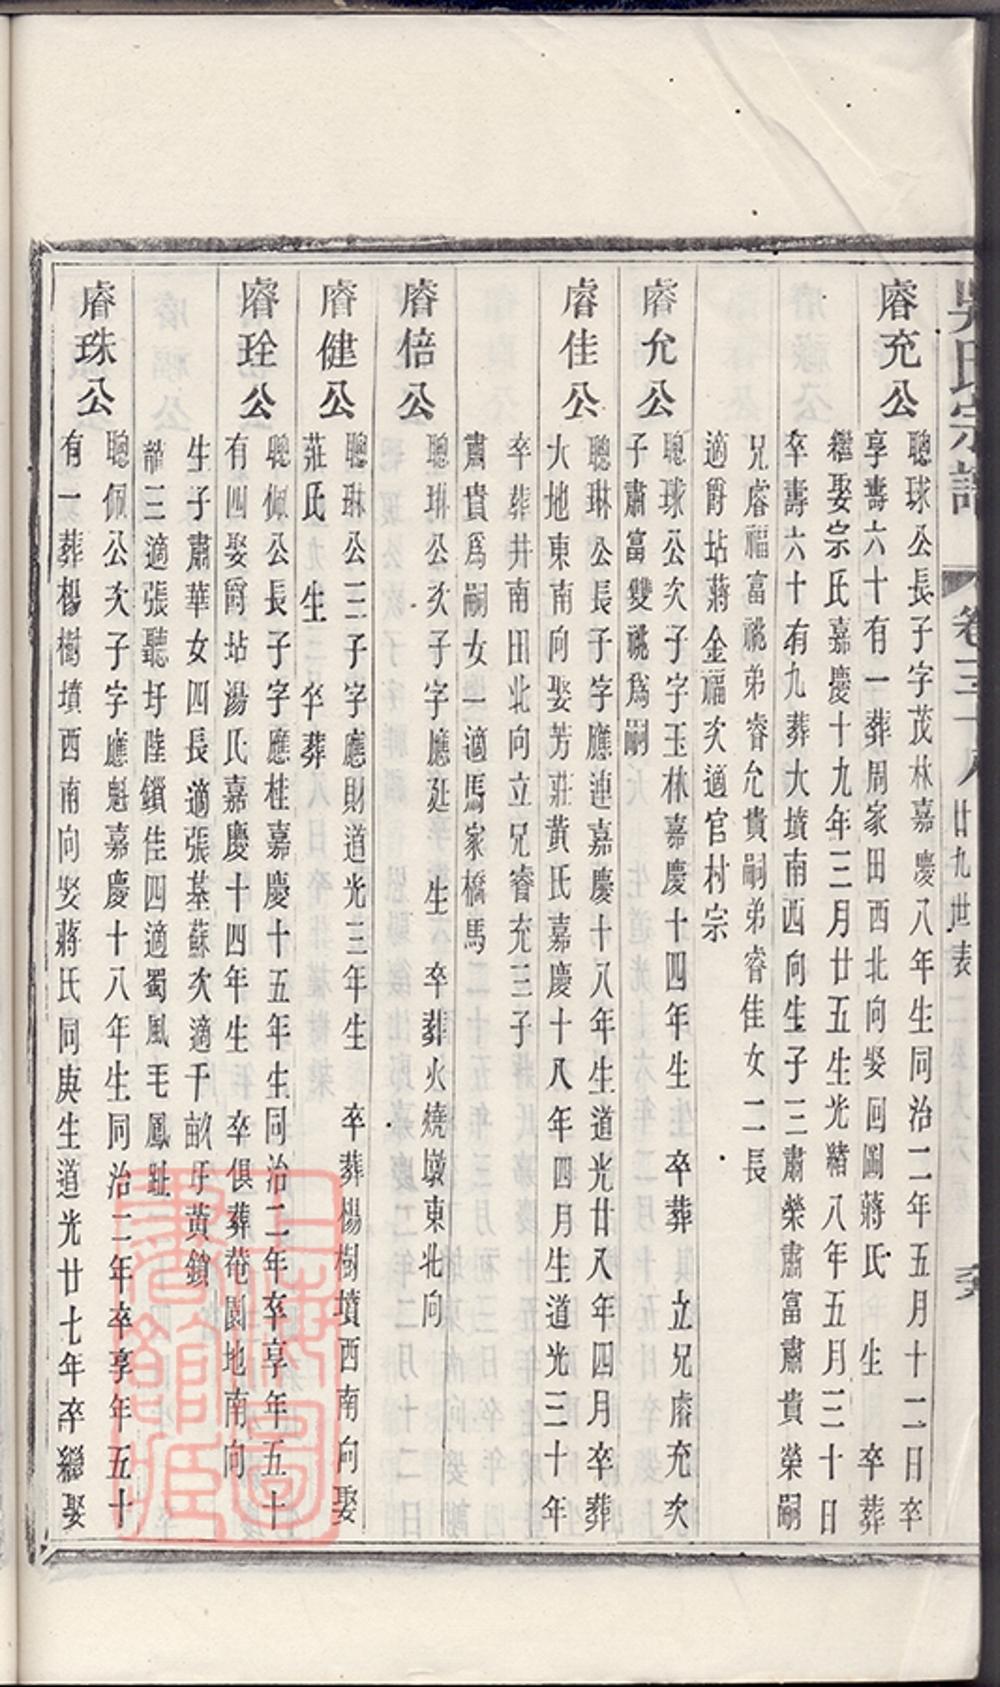 吳氏宗譜 卷三十八 廿九世表
睿充公
聰球公長子字茂林嘉慶八年生同治二年五月十二日卒
享壽六十有一葬周家田西北向娶回圖蔣氏 生 卒葬
繼娶宗氏嘉慶十九年三月廿五生光緒八年五月三十日
卒壽六十有九葬大墳南西向生子三肅榮肅富肅貴榮嗣
兄睿福富祧弟睿允貴嗣弟睿佳女二長
適爵坫蔣金福次適官村宗
睿允公
聰球公次子字玉林嘉慶十四年生 卒葬 立兄睿充次
子肅富雙祧為嗣
睿佳公
聰琳公長子字應連嘉慶十八年生道光廿八年四月卒葬
大地東南向娶芳莊黃氏嘉慶十八年四月生道光三十年
卒葬井南田北向立兄睿充三子
肅貴為嗣女一適馬家橋馬
睿倍公
聰琳公次子字應延 生 卒葬火燒墩東北向
睿健公
聰琳公三子字應財道光三年生 卒葬楊樹墳西南向娶
莊氏 生 卒葬
睿珪公
聰佩公長子字應桂嘉慶十五年生同治二年卒享年五十
有四娶爵坫湯氏嘉慶十四年生 卒俱葬菴園地南向
生子肅華女四長適張基蘇次適千畝圩黃鎖
龍三適張聽圩陸鎖佳四適蜀風毛鳳趾
睿珠公
聰佩公次子字應魁嘉慶十八年生同治二年卒享年五十
有一葬楊樹墳西南向娶蔣氏同庚生道光廿七年卒繼娶
上海圖書館藏